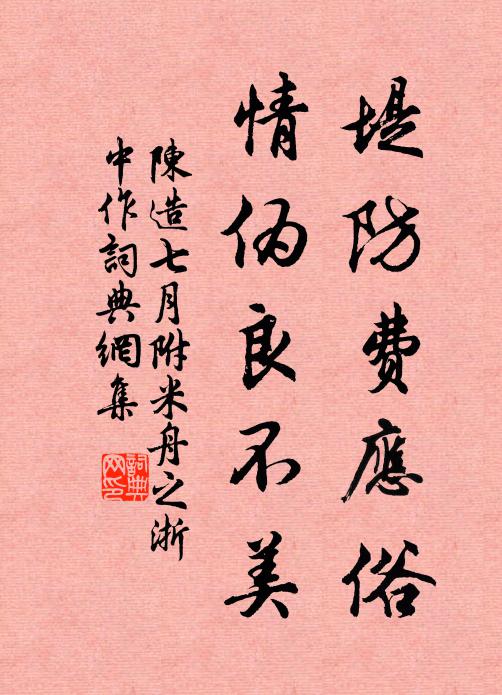 堤防費應俗
情偽良不美
陳造七月附米舟之浙
中作詞典網集
詞典网印